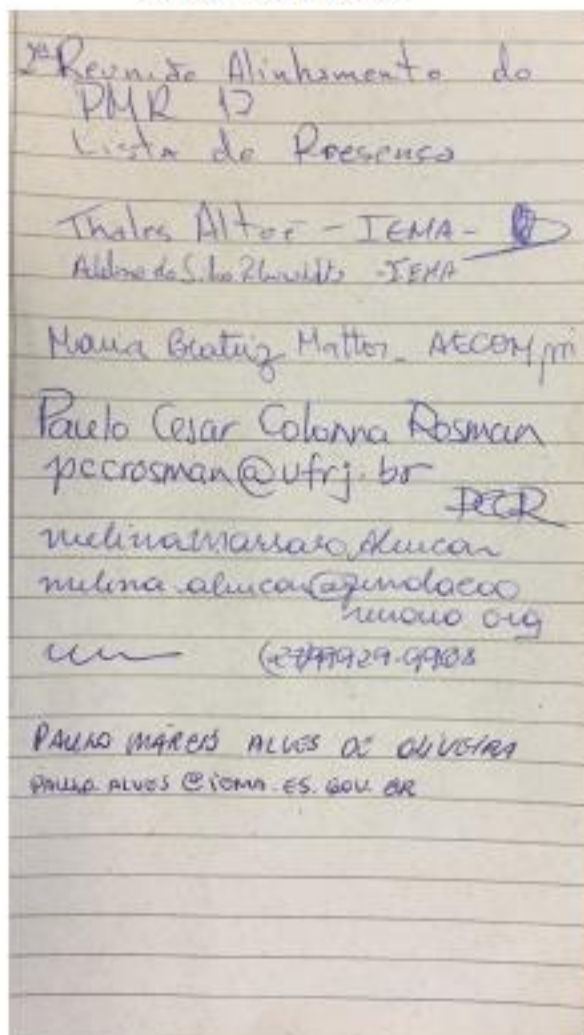 2ª Reunião Alinhamento do
PMR 12
Lista de Presença
Thales Altoé - IEMA -
Aldine da Silva - IEMA
Maria Beatriz Mattos - AECOM
Paulo Cesar Colonna Rosman
pccrosman@ufrj.br
PCCR
melina marsaro Alencar
melina.alencar@fundacao
renova.org
PAULO MÁRCIO ALVES DE OLIVEIRA
PAULO.ALVES@IEMA.ES.GOV.BR